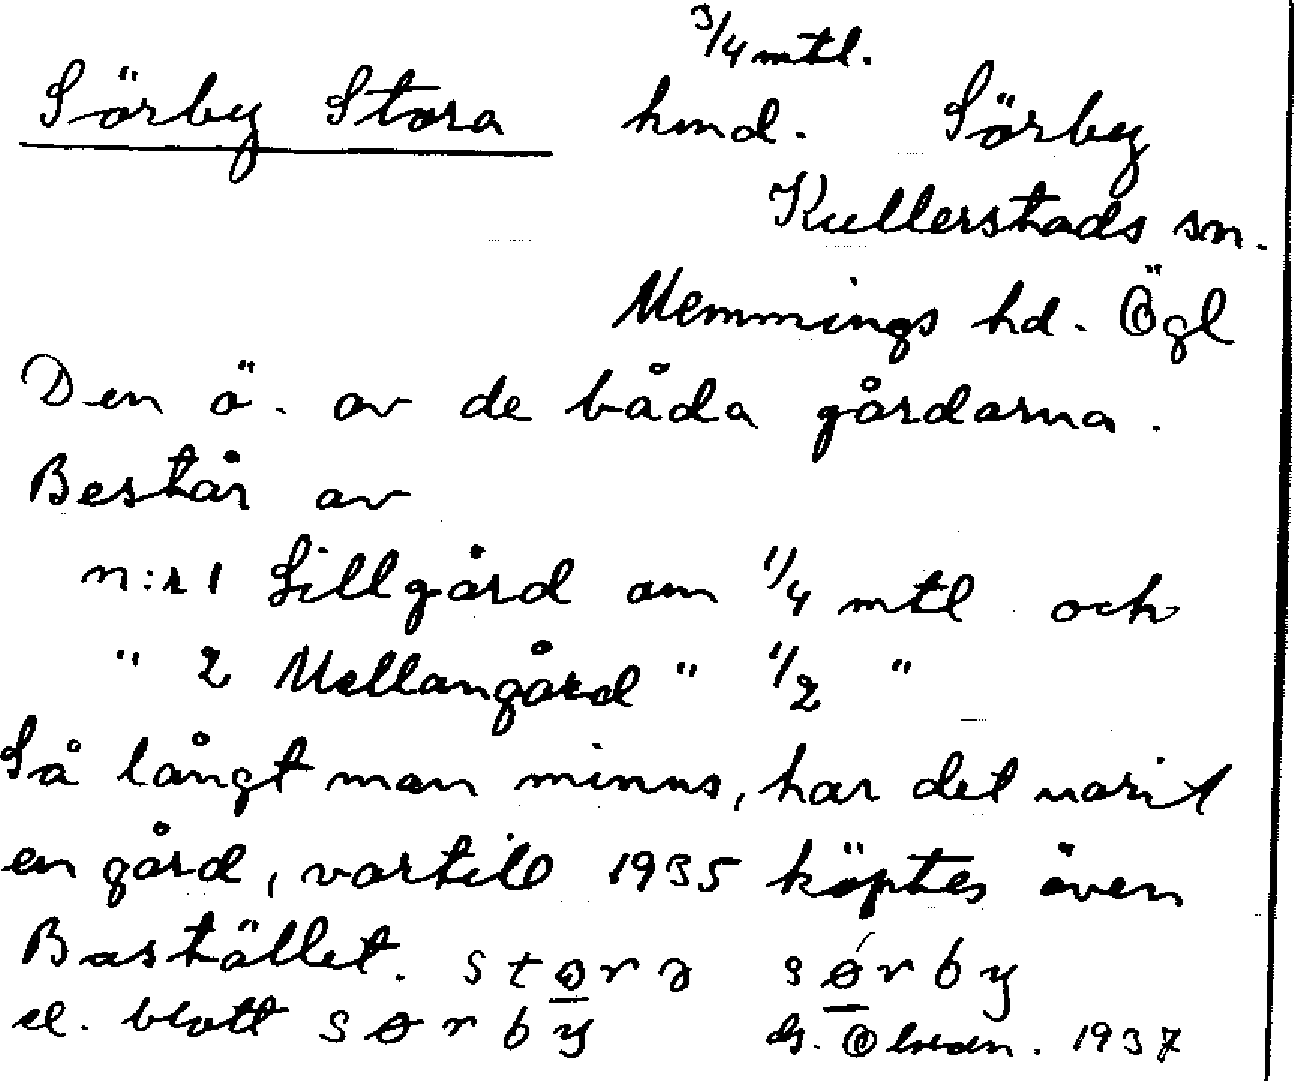 3/4 mtl.
Sörby Stora hmd. Sörby
Kullerstads sn.
Memmings hd. Ögl
Den ö. av de båda gårdarna.
Består av
n:r 1 Lillgård om 1/4 mtl och
" 2 Mellangård " 1/2 "
Så långt man minns, har det varit
en gård, vartill 1935 köptes även
Bastället. stora sørby
el. blott sørby 1937